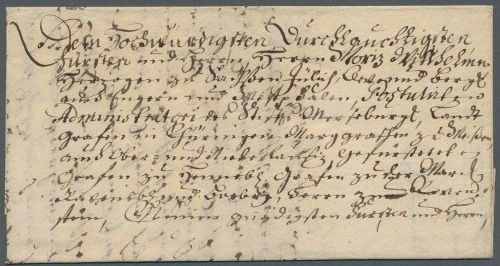 Dem Hochwürdigsten Durchlauchtigsten
Fürsten und Herrn, Herrn Moriz Wilhelm
Herzogen zu Sachßen Jülich Cleve und Berg
auch Engern und Westphalen, Postulat
Administratori des Stiffts Merseburgk, Landt
Grafen in Thüringen Marggraffen zu Meißen
auch Ober und Niederlausitz, Gefürstete
Grafen zu Henneberg, Grafen zu der Marck
Ravensberg und Barby, Herrn zum Raven
stein, Meinem gnädigsten Fürsten und Herrn,